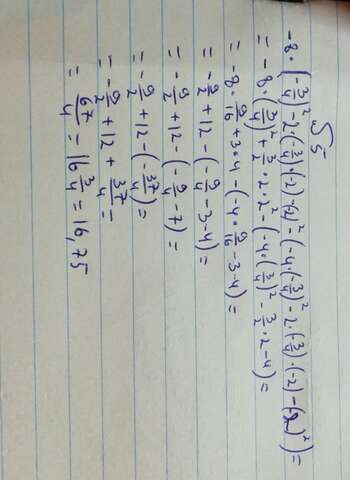 S5
-8·(-3/4)²-2·(-3/4)·(-2)·(-2)²-(-4·(-3/4)²-2·(-3/4)·(-2)-(-2)²)=
=-8·(3/4)²+3/2·2·2²-(-4·(3/4)²-3/2·2-4)=
=-8·9/16+3·4-(-4·9/16-3-4)=
=-9/2+12-(-9/4-3-4)=
=-9/2+12-(-9/4-7)=
=-9/2+12-(-37/4)=
=-9/2+12+37/4=
=67/4=16 3/4=16,75